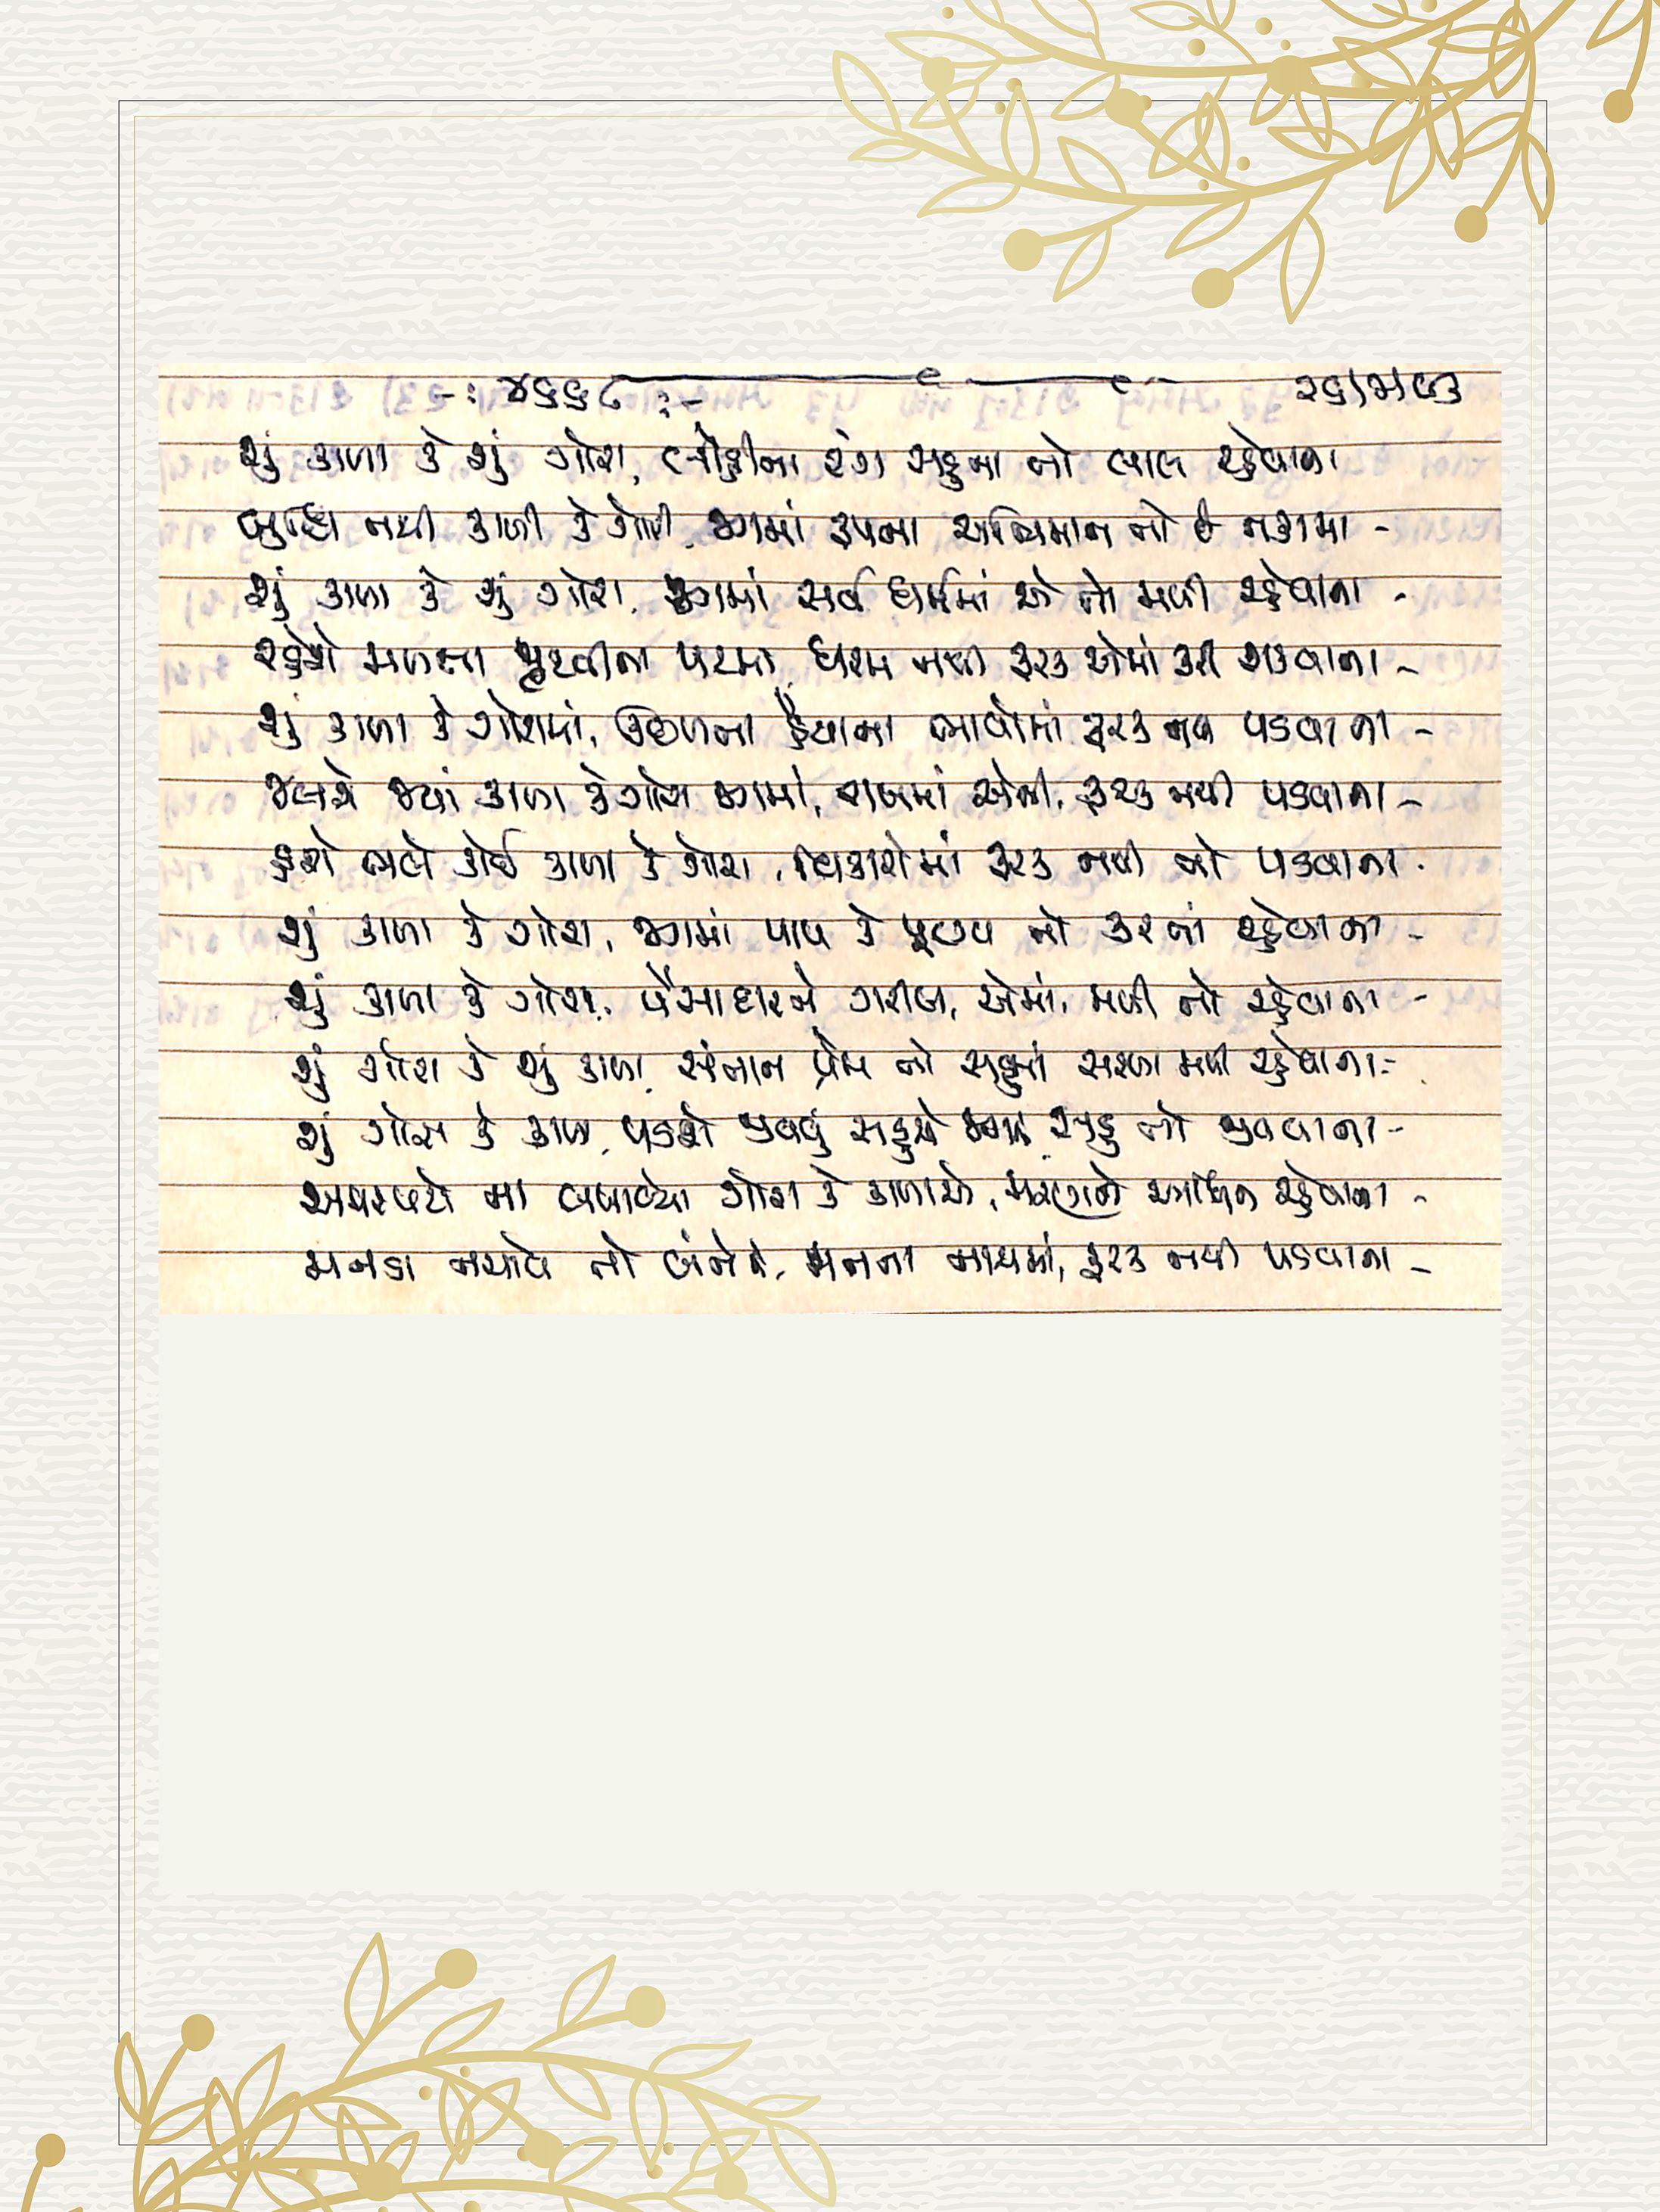 -: ૪૬૬૮ :-
શું કાળા કે શું ગોરા, લોહીના રંગ સહુના તો લાલ રહેવાના
બુદ્ધિ નથી કાળી કે ગોરી, જગમાં રૂપના અભિમાન તો છે નકામા -
શું કાળા કે શું ગોરા, જગમાં સર્વ ધર્મમાં એ તો મળી રહેવાના -
રહેશે મળતા પૃથ્વીના પટમાં, ધરમ નથી ફરક એમાં કરી શકવાના -
શું કાળા કે ગોરામાં, ઉછળતા હૈયાના ભાવોમાં ફરક નવ પડવાના -
જનમશે જ્યાં કાળા કે ગોરા જગમાં, લાજમાં એની, ફરક નથી પડવાના -
હશે ભલે કોઈ કાળા કે ગોરા, વિકારોમાં ફરક નથી તો પડવાના.
શું કાળા કે ગોરા, જગમાં પાપ કે પૂણ્ય તો કરતાં રહેવાના -
શું કાળા કે ગોરા, પૈસાદાર ને ગરીબ, એમાં, મળી તો રહેવાના -
શું ગોરા કે શું કાળા, સંતાન પ્રેમ તો સહુમાં સરખા મળી રહેવાના -
શું ગોરા કે કાળા, પડશે જીવવું સહુએ સહુ તો જીવવાના -
મા બનાવ્યા ગોરા કે કાળાએ, મરણને આધિન રહેવાના -
મનડા નચાવે તો બંનેને, મનના નાચમાં, ફરક નથી પડવાના -